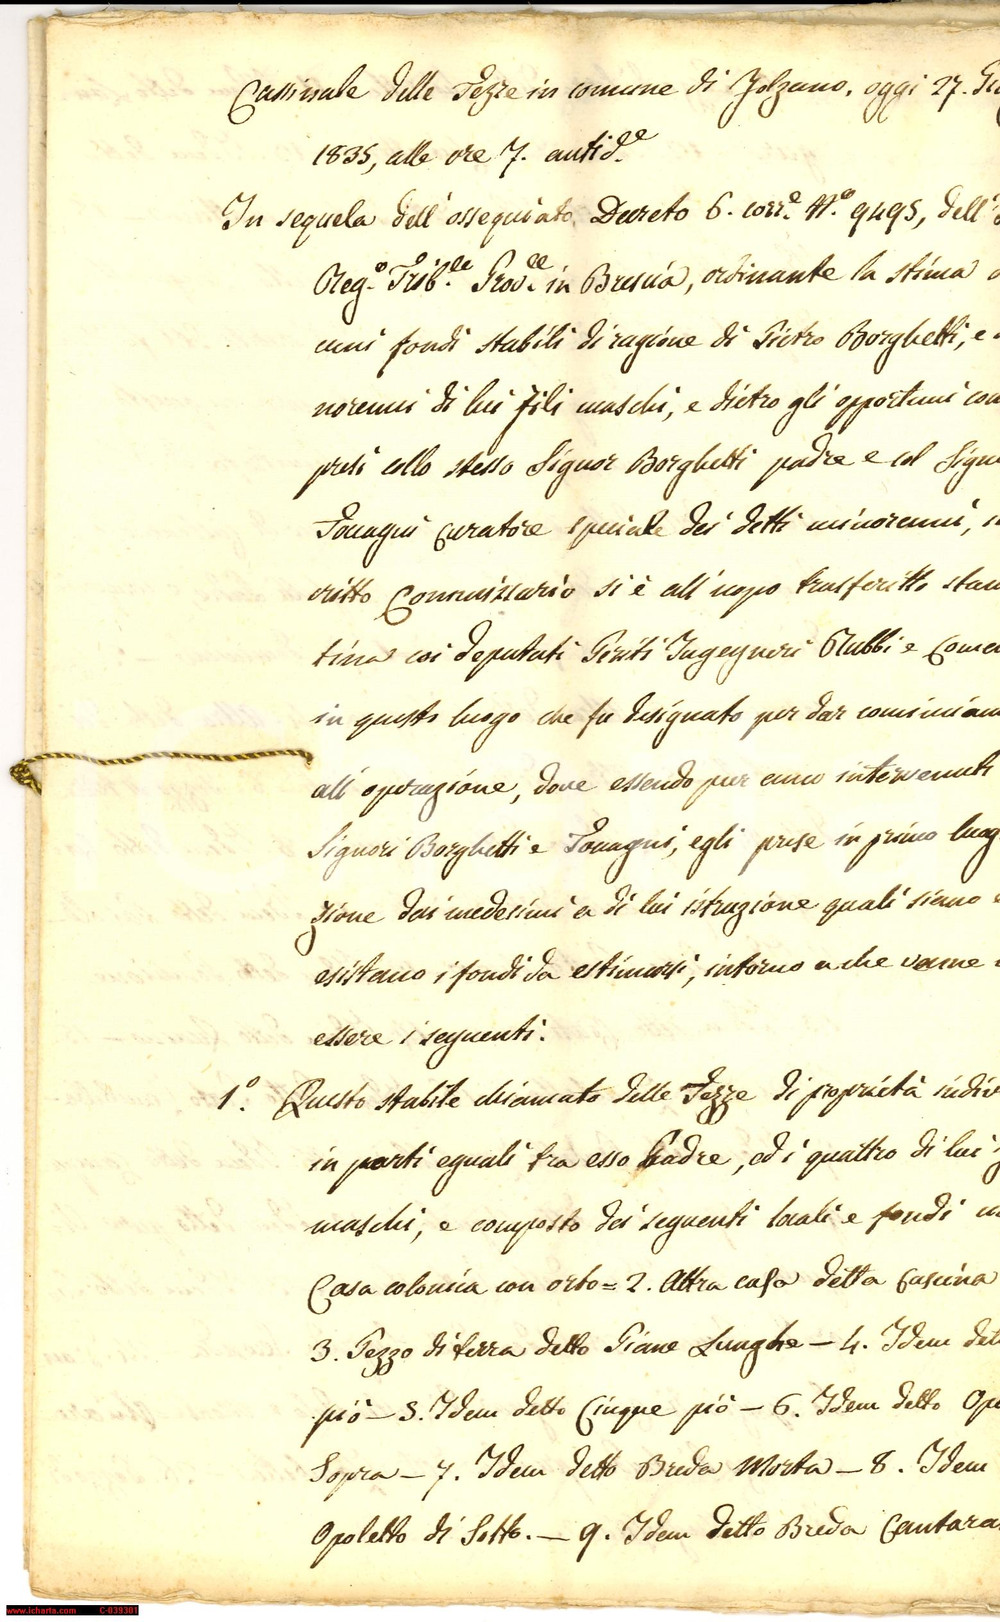 Cassinale delle Fezze in comune di Folzano, oggi 27. Giu
1835, alle ore 7. antid.e
In sequela dell'ossequiato Decreto 6. corr.e N.o 9495, dell'
Reg.o Trib.le Prov.le in Brescia, ordinante la stima
cuni fondi stabili di ragione di Pietro Borghetti, e
norenni di lui figli maschi, e dietro gli opportuni con
presi collo stesso Signor Borghetti padre e col Signo
curatore speciale dei detti minorenni,
critto Commissario si è all'uopo trasferitto stam
tina coi deputati Periti Ingegneri Rubbi e
in questo luogo che fu disignato per dar cominciam
all'operazione, dove essendo pur anco intervenuti
Signori Borghetti e egli prese in primo luog
zione dai medesimi a di lui istruzione quali siano
esistano i fondi da estimarsi, intorno a che venne
essere i seguenti.
1.o Questo stabile chiamato delle Fezze di proprietà indivi
in parti eguali tra esso Padre, ed i quattro di lui
maschi, e composto dei seguenti locali e fondi
Casa colonica con orto = 2. Altra casa detta Cascina
3. Pezzo di terra detto Piane Lunghe — 4. Idem det
piò — 5. Idem detto Cinque piò — 6. Idem detto Opo
Sopra — 7. Idem detto Breda Morta — 8. Idem
Opoletto di Sotto. — 9. Idem detto Breda Cantara
www.icharta.com C-039301